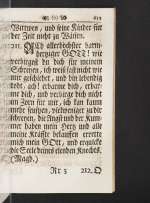 ) o ( 613
Wittwen, und seine Kinder für
der Zeit nicht zu Waisen.
211. ACh allerhöchster barm-
hertziger GOTT! wie
verbirgest du dich für meinem
Schreyen, ich weiß fast nicht wie
mir geschiehet, und bin lebendig
todt, ach! erbarme dich, erbar-
me dich, und verbirge dich nicht
im Zorn für mir, ich kan kaum
mehr seuftzen, vielweniger zu dir
schreyen, die Angst und der Kum-
mer haben mein Hertz und alle
meine Kräfte belauffen errette
mich mein GOtt, und erquicke
die Seele deines elenden Knechts,
(Magd.)
Rr 3 212. O